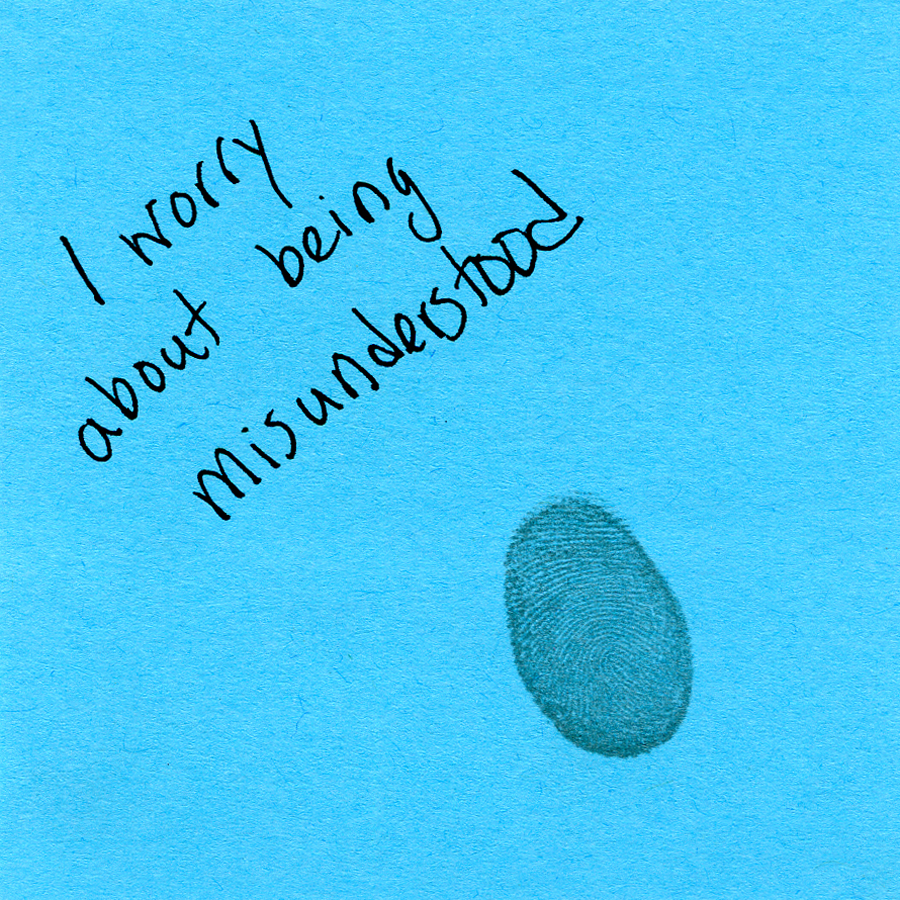 I worry
about being
misunderstood